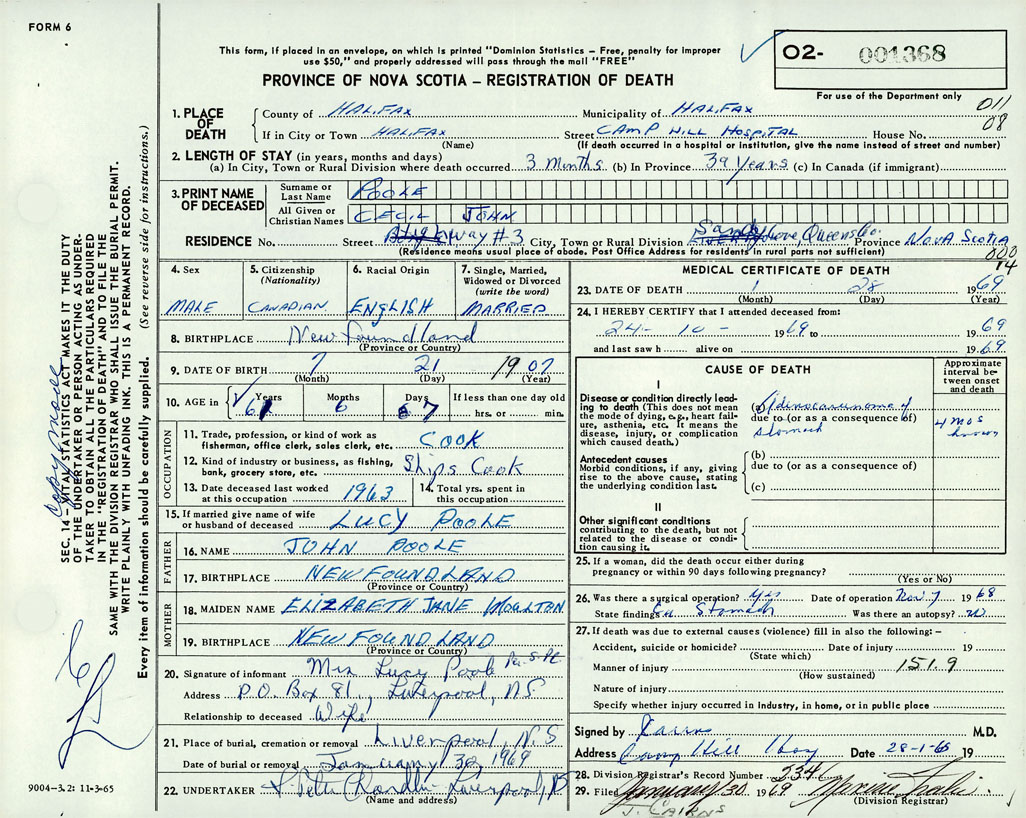 FORM 6
This form, if placed in an envelope, on which is printed "Dominion Statistics – Free, penalty for improper
use $50," and properly addressed will pass through the mail "FREE"
PROVINCE OF NOVA SCOTIA – REGISTRATION OF DEATH
O2- 001368
For use of the Department only
011
08
1. PLACE OF DEATH
County of HALIFAX Municipality of HALIFAX
If in City or Town HALIFAX Street CAMP HILL HOSPITAL House No.
(Name) (If death occurred in a hospital or institution, give the name instead of street and number)
2. LENGTH OF STAY (in years, months and days)
(a) In City, Town or Rural Division where death occurred 3 Months (b) In Province 39 Years (c) In Canada (if immigrant)
3. PRINT NAME OF DECEASED
Surname or Last Name POOLE
All Given or Christian Names CECIL JOHN
RESIDENCE No. Street way #3 City, Town or Rural Division Sandy Cove Queens Co. Province Nova Scotia
(Residence means usual place of abode. Post Office Address for residents in rural parts not sufficient)
000
14
4. Sex MALE
5. Citizenship (Nationality) CANADIAN
6. Racial Origin ENGLISH
7. Single, Married, Widowed or Divorced (write the word) MARRIED
8. BIRTHPLACE Newfoundland
(Province or Country)
9. DATE OF BIRTH 7 21 1907
(Month) (Day) (Year)
10. AGE in Years 61 Months 6 Days 7 If less than one day old hrs. or min.
OCCUPATION
11. Trade, profession, or kind of work as fisherman, office clerk, salesclerk, etc. COOK
12. Kind of industry or business, as fishing, bank, grocery store, etc. Ships Cook
13. Date deceased last worked at this occupation 1963
14. Total yrs. spent in this occupation
15. If married give name of wife or husband of deceased LUCY POOLE
FATHER
16. NAME JOHN POOLE
17. BIRTHPLACE NEWFOUNDLAND
(Province or Country)
MOTHER
18. MAIDEN NAME ELIZABETH JANE MOULTON
19. BIRTHPLACE NEWFOUNDLAND
(Province or Country)
20. Signature of informant Mrs Lucy Poole
Address P.O. Box 81, Liverpool, NS
Relationship to deceased Wife
21. Place of burial, cremation or removal Liverpool, N.S
Date of burial or removal January 30, 1969
22. UNDERTAKER Liverpool, NS
(Name and address)
MEDICAL CERTIFICATE OF DEATH
23. DATE OF DEATH 1 28 1969
(Month) (Day) (Year)
24. I HEREBY CERTIFY that I attended deceased from:
24 - 10 - 1969 to 1969
and last saw h alive on 1969
CAUSE OF DEATH
Approximate interval between onset and death
I
Disease or condition directly leading to death (This does not mean the mode of dying, e.g., heart failure, asthenia, etc. It means the disease, injury, or complication which caused death.)
(a) Adinocarcinoma of
due to (or as a consequence of)
stomach
4 mos
known
Antecedent causes
Morbid conditions, if any, giving rise to the above cause, stating the underlying condition last.
(b)
due to (or as a consequence of)
(c)
II
Other significant conditions
contributing to the death, but not related to the disease or condition causing it.
25. If a woman, did the death occur either during
pregnancy or within 90 days following pregnancy?
(Yes or No)
26. Was there a surgical operation? Yes Date of operation Nov. 7 1968
State findings Ca Stomach Was there an autopsy? no
27. If death was due to external causes (violence) fill in also the following: –
Accident, suicide or homicide? Date of injury 19
(State which)
Manner of injury 151.9
(How sustained)
Nature of injury
Specify whether injury occurred in Industry, in home, or in public place
Signed by Cairns M.D.
Address Camp Hill Hosp Date 28-1-65 19
28. Division Registrar's Record Number 2346
29. Filed January 30 1969
(Division Registrar)
J. CAIRNS
9004-3.2: 11-3-65
copy made
SEC. 14 – VITAL STATISTICS ACT MAKES IT THE DUTY
OF THE UNDERTAKER OR PERSON ACTING AS UNDER-
TAKER TO OBTAIN ALL THE PARTICULARS REQUIRED
IN THE "REGISTRATION OF DEATH" AND TO FILE THE
SAME WITH THE DIVISION REGISTRAR WHO SHALL ISSUE THE BURIAL PERMIT.
WRITE PLAINLY WITH UNFADING INK. THIS IS A PERMANENT RECORD.
Every item of information should be carefully supplied. (See reverse side for instructions.)